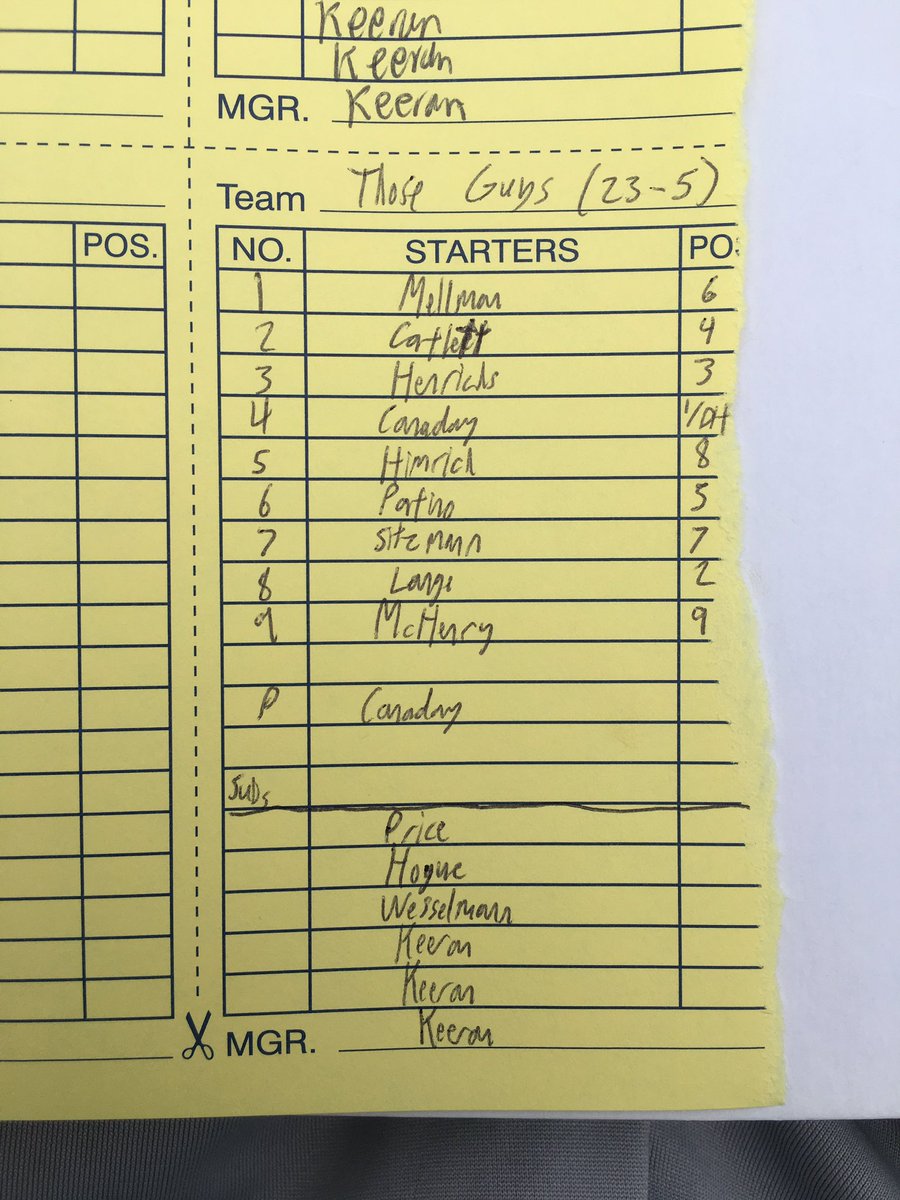 Keeran
Keeran
MGR. Keeran
Team Those Guys (23-5)
POS. NO. STARTERS POS
1 Mellman 6
2 Cartlett 4
3 Henrichs 3
4 Canaday 1/DH
5 Himrich 8
6 Partino 5
7 Sitzmann 7
8 Lange 2
9 McHenry 9
P Canaday
Subs
Price
Hogue
Wesselmann
Keeran
Keeran
MGR. Keeran